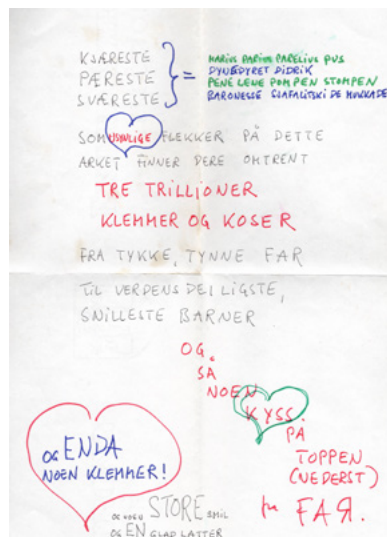 KJÆRESTE
PÆRESTE
SVÆRESTE
=
MARIUS PARIUS PARELIUS PUS
DYNEDYRET DIDRIK
PENE LENE POMPEN STOMPEN
BARONESSE SLAFALITSKI DE MUKKADE
SOM USYNLIGE FLEKKER PÅ DETTE
ARKET FINNER DERE OMTRENT
TRE TRILLIONER
KLEMMER OG KOSER
FRA TYKKE, TYNNE FAR
TIL VERDENS DEILIGSTE,
SNILLESTE BARNER
OG.
SÅ
NOEN
KYSS.
PÅ
TOPPEN
(NEDERST)
fra FAR.
OG ENDA
NOEN KLEMMER!
OG NOEN STORE SMIL
OG EN GLAD LATTER